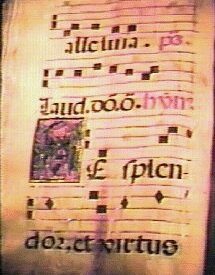 alleluia. ps.
Laud. dō. ō. hym.
E splen-
dor, et virtus